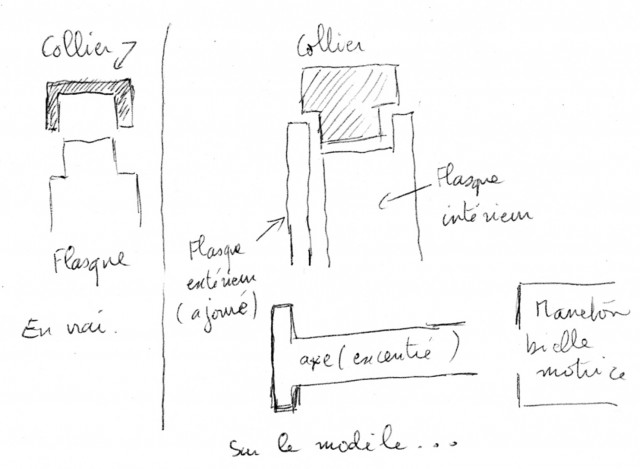 Collier
Flasque
En vrai.
Collier
Flasque
intérieur
Flasque
extérieur
(ajouré)
axe (excentré)
Maneton
bielle
motrice
Sur le modèle...